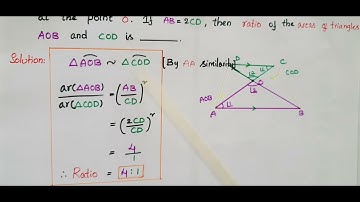 at the point O. If AB = 2CD, then ratio of the areas of triangles
AOB and COD is ______.
Solution:
△AOB ~ △COD [By AA similarity]
ar(△AOB) / ar(△COD) = (AB / CD)²
= (2CD / CD)²
= 4 / 1
∴ Ratio = 4:1
D
C
COD
O
AOB
A
B